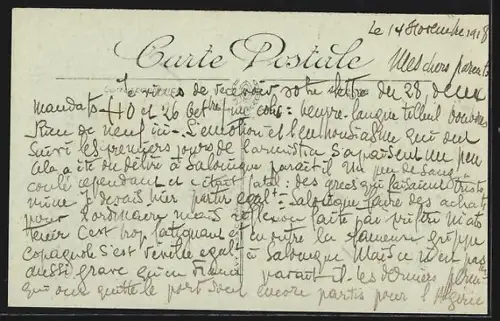 Le 14 Novembre 1918
Carte Postale
Mes chers parents
Je viens de recevoir votre lettre du 28, deux
mandats - (10 et 26 Octbre) un colis: beurre - langue tilleul
Rien de neuf ici - L'émotion et l'enthousiasme qui ont
suivi les premiers jours de l'armistice s'apaisent un peu
Cela a été du délire à Salonique paraît il un peu de sang
coulé cependant et c'était fatal: des grecs qui faisaient triste
mine. Je devais hier partir égalt à Salonique faire des achats
pour l'ordinaire mais réflexion faite j'ai
c'est trop fatigant et en outre la fameuse grippe
espagnole s'est révélée égalt à Salonique Mais ce n'est pas
aussi grave qu'en France
paraît-il - les derniers
qui ont quitté le port sont encore partis pour l'Algérie